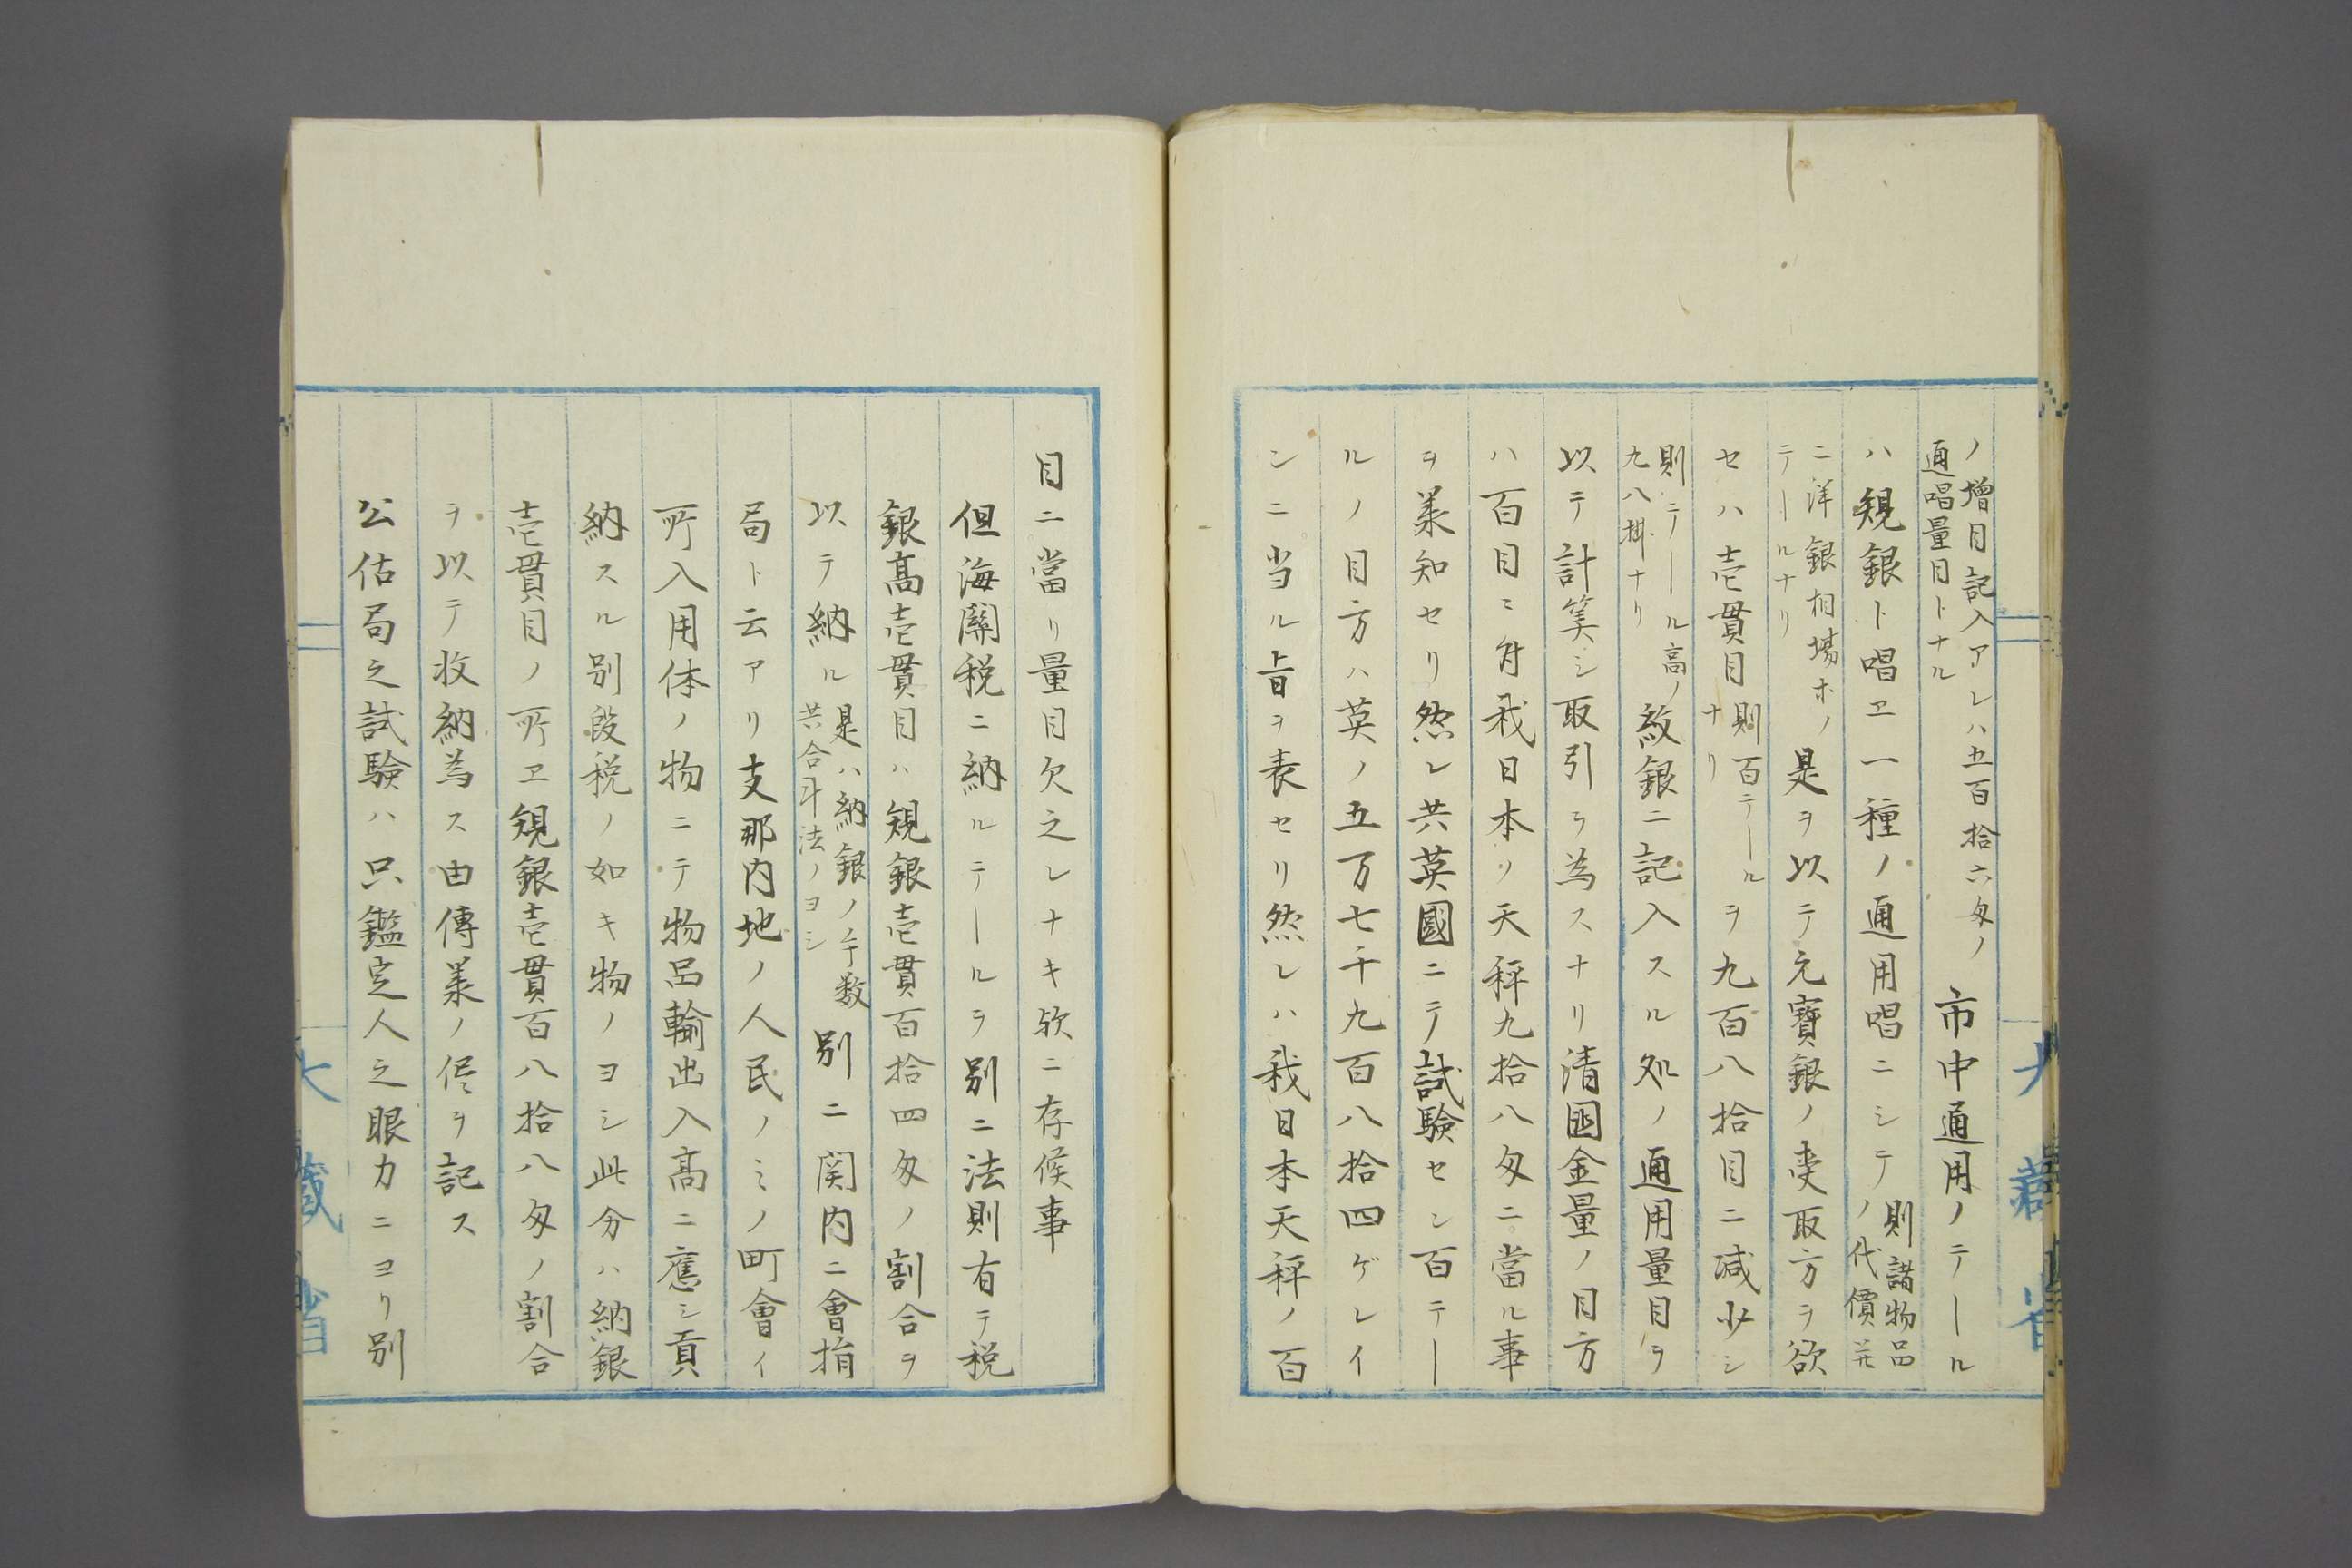 ノ増目記入アレハ五百拾六匁ノ
通唱量目トナル
市中通用ノテール
ハ規銀ト唱ヱ一種ノ通用唱ニシテ
則諸物品
ノ代價并
ニ洋銀相場ホノ
テールナリ
是ヲ以テ元寳銀ノ受取方ヲ欲
セハ壱貫目
則百テール
ナリ
ヲ九百八拾目ニ減少シ
則テール高ノ
九八掛ナリ
紋銀ニ記入スル処ノ通用量目ヲ
以テ計筭シ取引ヲ為スナリ清國金量ノ目方
ハ百目ニ付我日本ノ天秤九拾八匁ニ當ル事
ヲ羕知セリ然レ共英國ニテ試験セシ百テー
ルノ目方ハ英ノ五万七千九百八拾四ゲレイ
ンニ当ル旨ヲ表セリ然レハ我日本天秤ノ百
目ニ當リ量目欠之レナキ欤ニ存候事
但海關税ニ納ルテールヲ別ニ法則有テ税
銀髙壱貫目ハ規銀壱貫百拾四匁ノ割合ヲ
以テ納ル
是ハ納銀ノ手数
共合斗法ノヨシ
別ニ関内ニ會捐
局ト云アリ支那内地ノ人民ノミノ町會イ
所入用体ノ物ニテ物品輸出入髙ニ應シ貢
納スル別段税ノ如キ物ノヨシ此分ハ納銀
壱貫目ノ所ヱ規銀壱貫百八拾八匁ノ割合
ヲ以テ收納為ス由傳羕ノ侭ヲ記ス
公估局之試験ハ只鑑定人之眼力ニヨリ別
大藏省